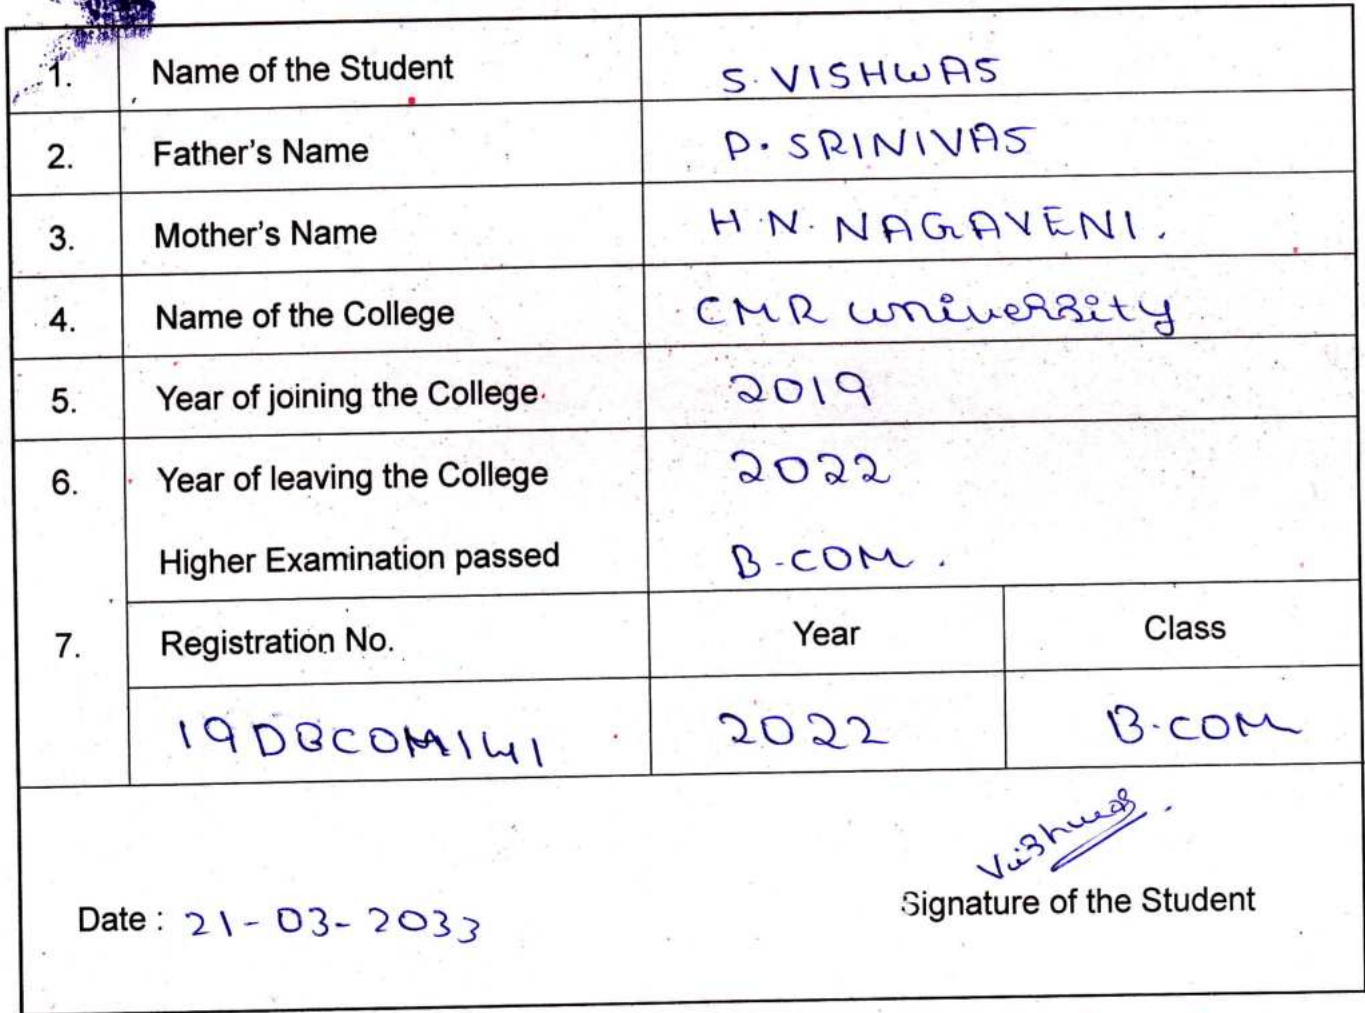 1. Name of the Student S. VISHWAS
2. Father's Name P. SRINIVAS
3. Mother's Name H.N. NAGAVENI.
4. Name of the College CMR University
5. Year of joining the College 2019
6. Year of leaving the College 2022
Higher Examination passed B.COM.
7. Registration No. Year Class
19DBCOM141 2022 B.COM
Vishwas.
Signature of the Student
Date : 21-03-2033